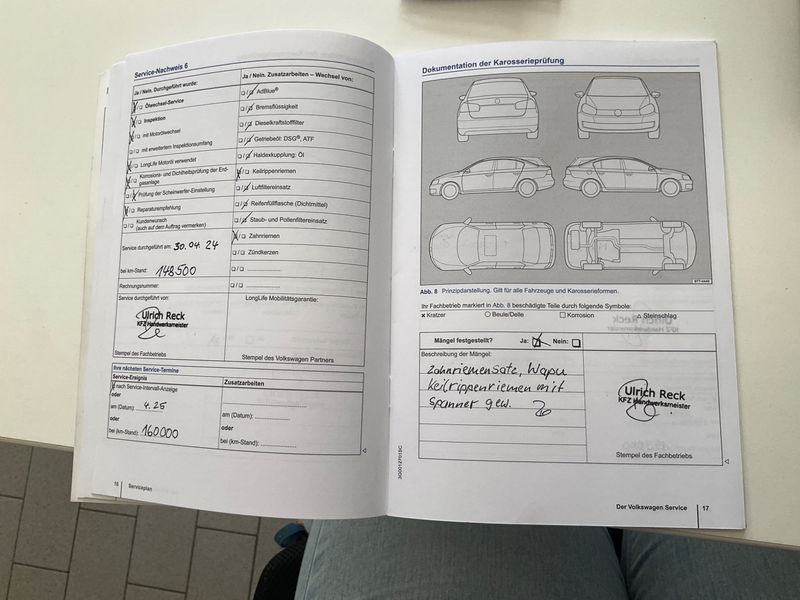 Service-Nachweis 6
Ja / Nein. Durchgeführt wurde:
Ölwechsel-Service
Inspektion
mit Motorölwechsel
mit erweitertem Inspektionsumfang
LongLife Motoröl verwendet
Korrosions- und Dichtheitsprüfung der Erd-
gasanlage
Prüfung der Scheinwerfer-Einstellung
Reparaturempfehlung
Kundenwunsch
(auch auf dem Auftrag vermerken)
Service durchgeführt am: 30.04.24
bei km-Stand: 148500
Rechnungsnummer:
Service durchgeführt von:
Ulrich Reck
KFZ Handwerksmeister
Stempel des Fachbetriebs
Ja / Nein. Zusatzarbeiten – Wechsel von:
AdBlue®
Bremsflüssigkeit
Dieselkraftstofffilter
Getriebeöl: DSG®, ATF
Haldexkupplung: Öl
Keilrippenriemen
Luftfiltereinsatz
Reifenfüllflasche (Dichtmittel)
Staub- und Pollenfiltereinsatz
Zahnriemen
Zündkerzen
LongLife Mobilitätsgarantie:
Stempel des Volkswagen Partners
Ihre nächsten Service-Termine
Service-Ereignis
nach Service-Intervall-Anzeige
oder
am (Datum): 4.25
oder
bei (km-Stand): 160000
Zusatzarbeiten
am (Datum):
oder
bei (km-Stand):
16 Serviceplan
Dokumentation der Karosserieprüfung
Abb. 8 Prinzipdarstellung. Gilt für alle Fahrzeuge und Karosserieformen.
Ihr Fachbetrieb markiert in Abb. 8 beschädigte Teile durch folgende Symbole:
x Kratzer ○ Beule/Delle □ Korrosion △ Steinschlag
Mängel festgestellt? Ja: Nein:
Beschreibung der Mängel:
Zahnriemensatz, Wapu
Keilrippenriemen mit
Spanner gew.
Ulrich Reck
KFZ Handwerksmeister
Stempel des Fachbetriebs
Der Volkswagen Service 17